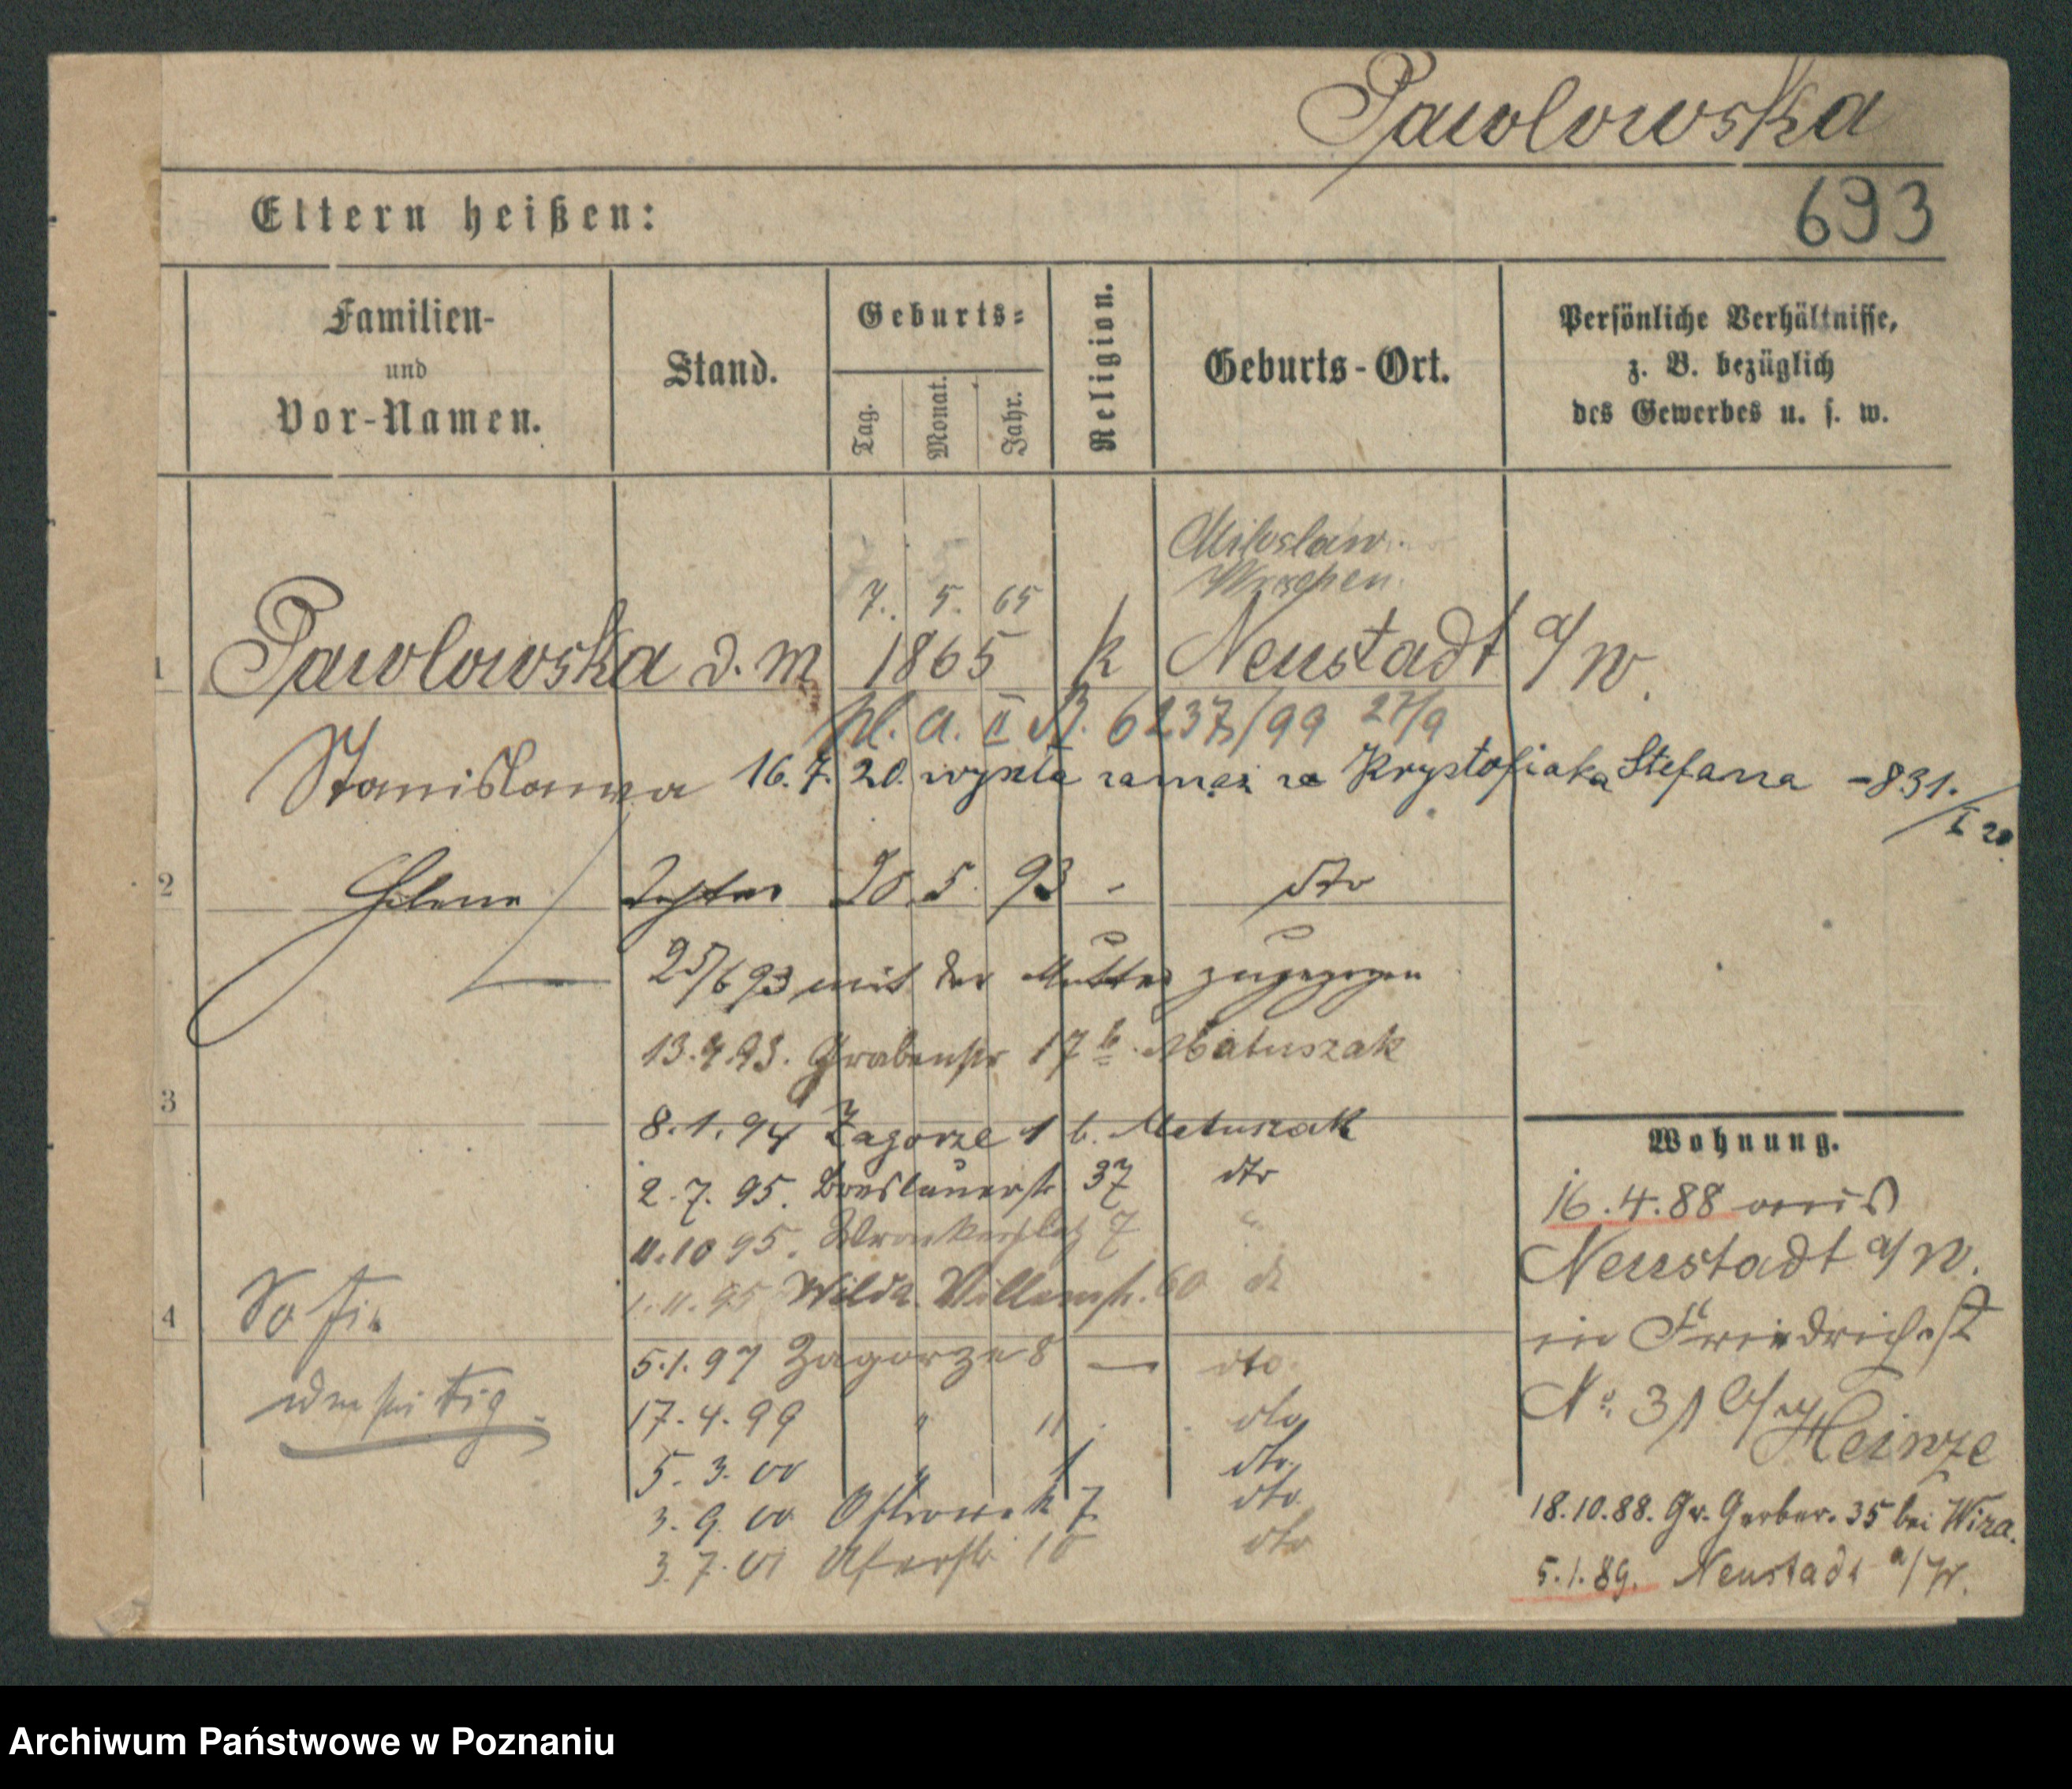 Pawlowska
693
Eltern heißen:
Familien-
und
Vor-Namen.
Stand.
Geburts-
Tag.
Monat.
Jahr.
Religion.
Geburts-Ort.
Persönliche Verhältnisse,
z. B. bezüglich
des Gewerbes u. s. w.
Miloslaw.
Wreschen.
7. 5. 65
1 Pawlowska d. m 1865 k Neustadt a/W.
pl. a. II B. 6237/99 27/9
Stanislawa 16.7.20. wyszła zamąż za Krystofiaka Stefana -831./I 20.
2 Helene Tochter 20. 5. 93 - dto
25/6 93 mit der Mutter zugezogen
13.9.93. Grabenstr 17 b. Matuszak
3
8.1.94 Zagorze 1 b. Matuszak
2.7.95. Breslauerstr 37 dto
11.10 95. Wronkerplatz 7 "
1.11.95 Wilda. Villenstr. 60 dt
4 Sofia
5.1.97 Zagorze 8 — dto.
17.4.99 " 11. dto
5. 3. 00 " 1 dto.
3. 9. 00 Ostrowek 7. dto
3. 7. 01 10 dto
Wohnung.
16.4.88 aus
Neustadt a/W.
in Friedrichst
No. 31 b/ Heinze
18.10.88. Gr. Gerber. 35 bei Wiza.
5.1.89. Neustadt a/W.
Archiwum Państwowe w Poznaniu